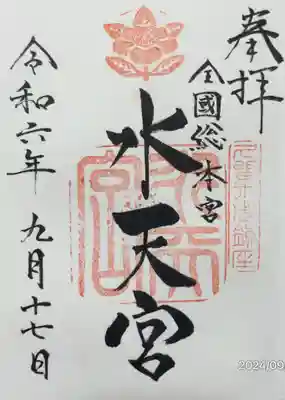 奉拝
全國総本宮
水天宮
令和六年 九月十七日
2024/09